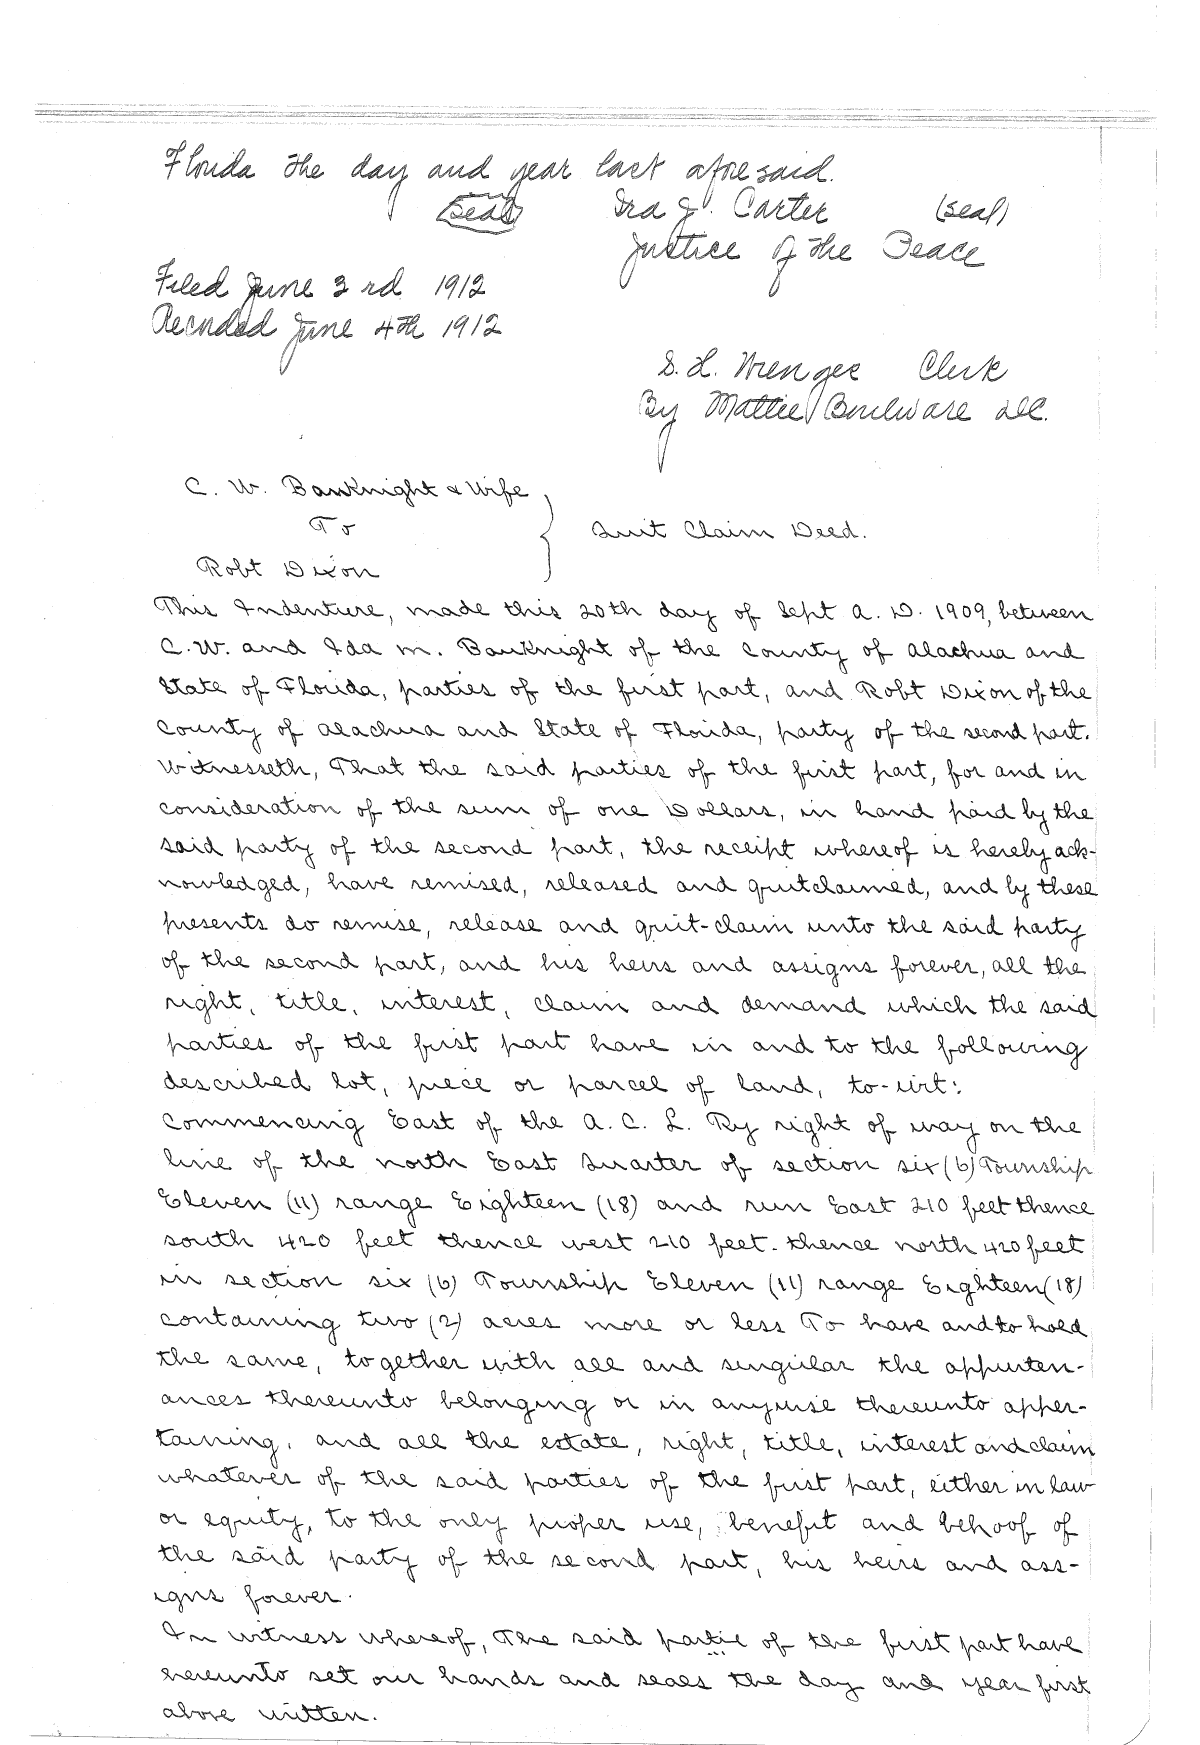 Florida the day and year last aforesaid.
(Seal) Ira J. Carter (seal)
Justice of the Peace
Filed June 3 rd 1912
Recorded June 4th 1912
S. H. Wienges Clerk
By Mattie Boulware D.C.
C. W. Bauknight & Wife
To
Quit Claim Deed.
Robt Dixon
This Indenture, made this 20th day of Sept A. D. 1909, between
C. W. and Ida M. Bauknight of the County of Alachua and
State of Florida, parties of the first part, and Robt Dixon of the
County of Alachua and State of Florida, party of the second part.
Witnesseth, That the said parties of the first part, for and in
consideration of the sum of one Dollars, in hand paid by the
said party of the second part, the receipt whereof is hereby ack-
nowledged, have remised, released and quitclaimed, and by these
presents do remise, release and quit-claim unto the said party
of the second part, and his heirs and assigns forever, all the
right, title, interest, claim and demand which the said
parties of the first part have in and to the following
described lot, piece or parcel of land, to-wit:
Commencing East of the A. C. L. Ry right of way on the
line of the north East Quarter of section six (6) Township
Eleven (11) range Eighteen (18) and run East 210 feet thence
south 420 feet thence west 210 feet. thence north 420 feet
in section six (6) Township Eleven (11) range Eighteen (18)
containing two (2) acres more or less To have and to hold
the same, together with all and singular the appurten-
ances thereunto belonging or in anywise thereunto apper-
taining, and all the estate, right, title, interest and claim
whatever of the said parties of the first part, either in law
or equity, to the only proper use, benefit and behoof of
the said party of the second part, his heirs and ass-
igns forever.
In witness whereof, The said partie of the first part have
hereunto set our hands and seals the day and year first
above written.